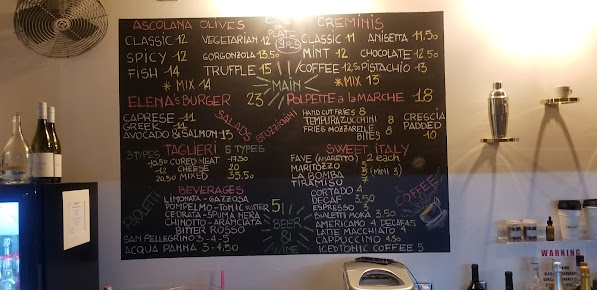 ASCOLANA OLIVES
CLASSIC 12 VEGETARIAN 12
SPICY 12 GORGONZOLA 13,50
FISH 14 TRUFFLE 15
* MIX 14
PLATE
9 PCS
CREMINIS
CLASSIC 11 ANISETTA 11,50
MINT 12 CHOCOLATE 12,50
COFFEE 12,50 PISTACHIO 13
* MIX 13
MAIN
ELENA'S BURGER 23
POLPETTE a la MARCHE 18
SALADS
CAPRESE 11
GREEK 11
AVOCADO & SALMON 13
STUZZICHINI
HAND CUT FRIES 8
TEMPURA ZUCCHINI 8
FRIES MOZZARELLE BITES 8
CRESCIA
PADDED
10
TAGLIERI
3 TYPES 5 TYPES
10,50 CURED MEAT 17,50
12 CHEESE 20
20 MIXED 35,50
SWEET ITALY
FAVE (AMARETTO) 2 each
MARITOZZO
LA BOMBA (MINI 3)
TIRAMISU
BEVERAGES
PAOLETTI
LIMONATA - GAZZOSA
POMPELMO - TONIC WATER
CEDRATA - SPUMA NERA
CHINOTTO - ARANCIATA
BITTER ROSSO
5
SAN PELLEGRINO 3 - 4 - 5
ACQUA PANNA 3 - 4,50
BEER
&
WINE
COFFEE
CORTADO 4
DECAF 3,50
ESPRESSO 3
BIALETTI MOKA 3,50
AMERICANO 4 DECAF 4,5
LATTE MACCHIATO 4
CAPPUCCINO 4,50
ICED TONIC COFFEE 5
WARNING